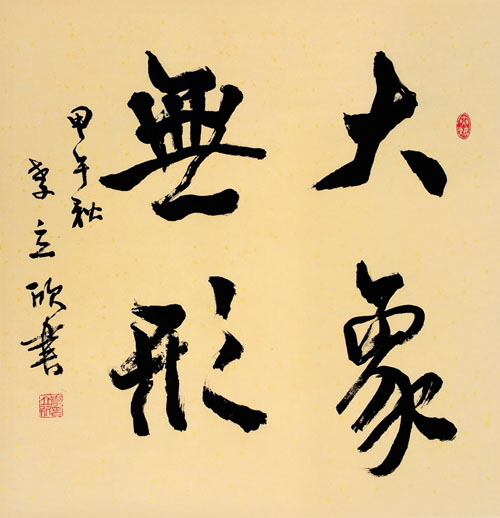 大象
無形
甲午秋
李立欣書